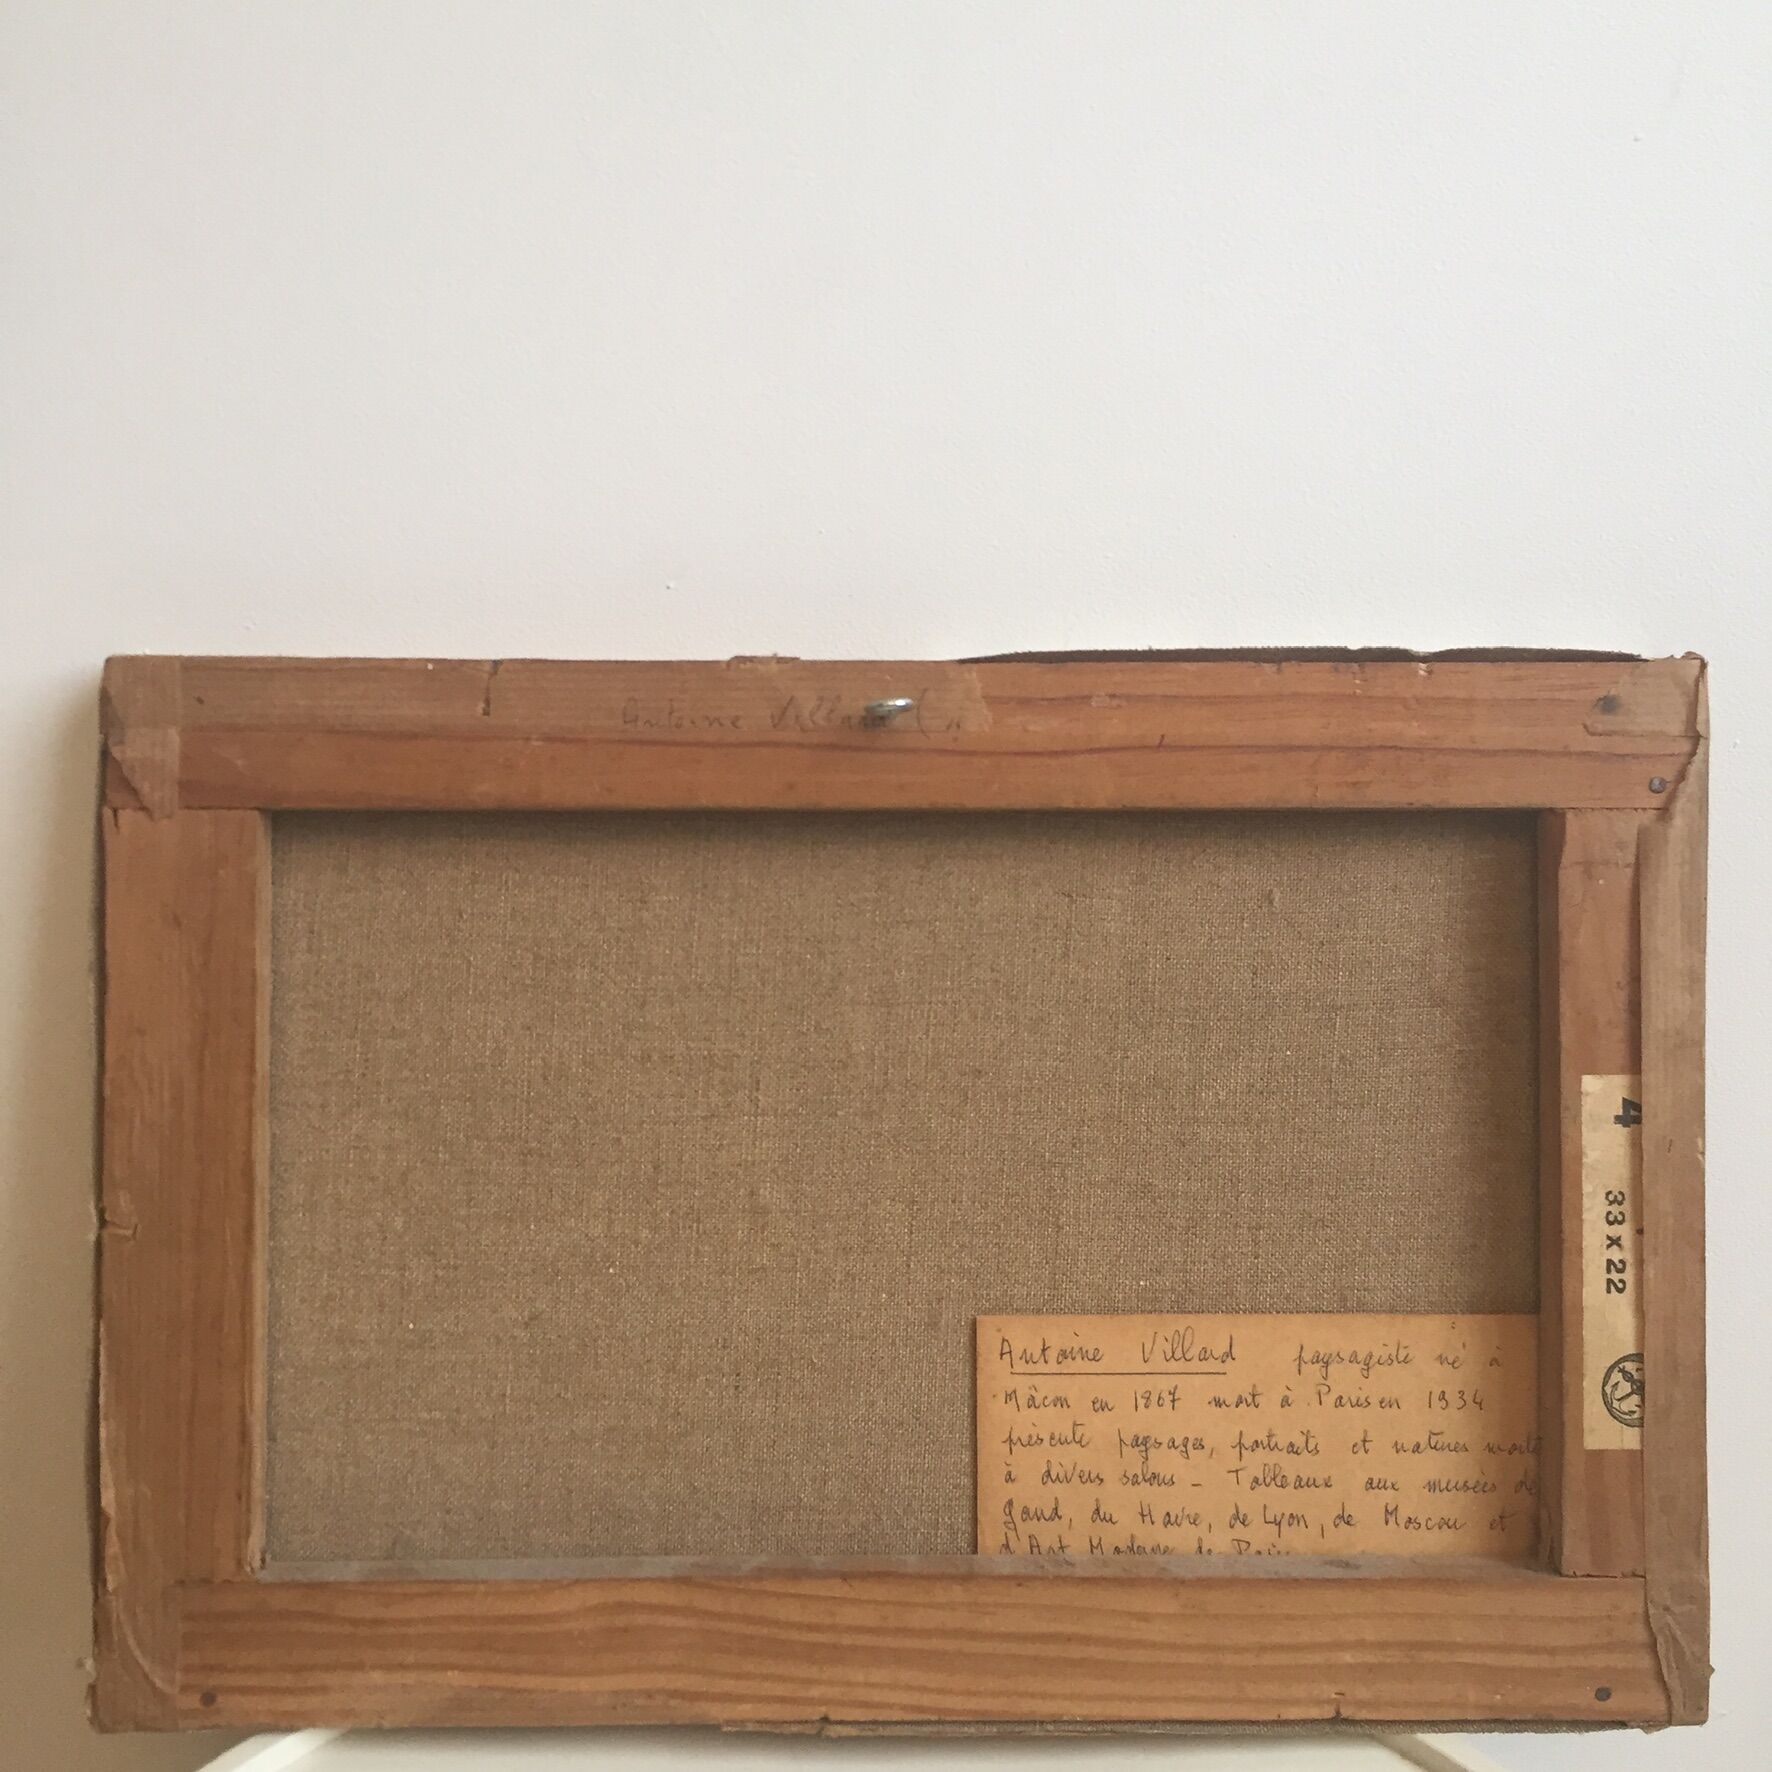 Antoine Villard (
4
33 x 22
Antoine Villard paysagiste né à
Mâcon en 1867 mort à Paris en 1934
présente paysages, portraits et natures morte
à divers salons - Tableaux aux musées de
Gand, du Havre, de Lyon, de Moscou et
d'Art Moderne de Paris